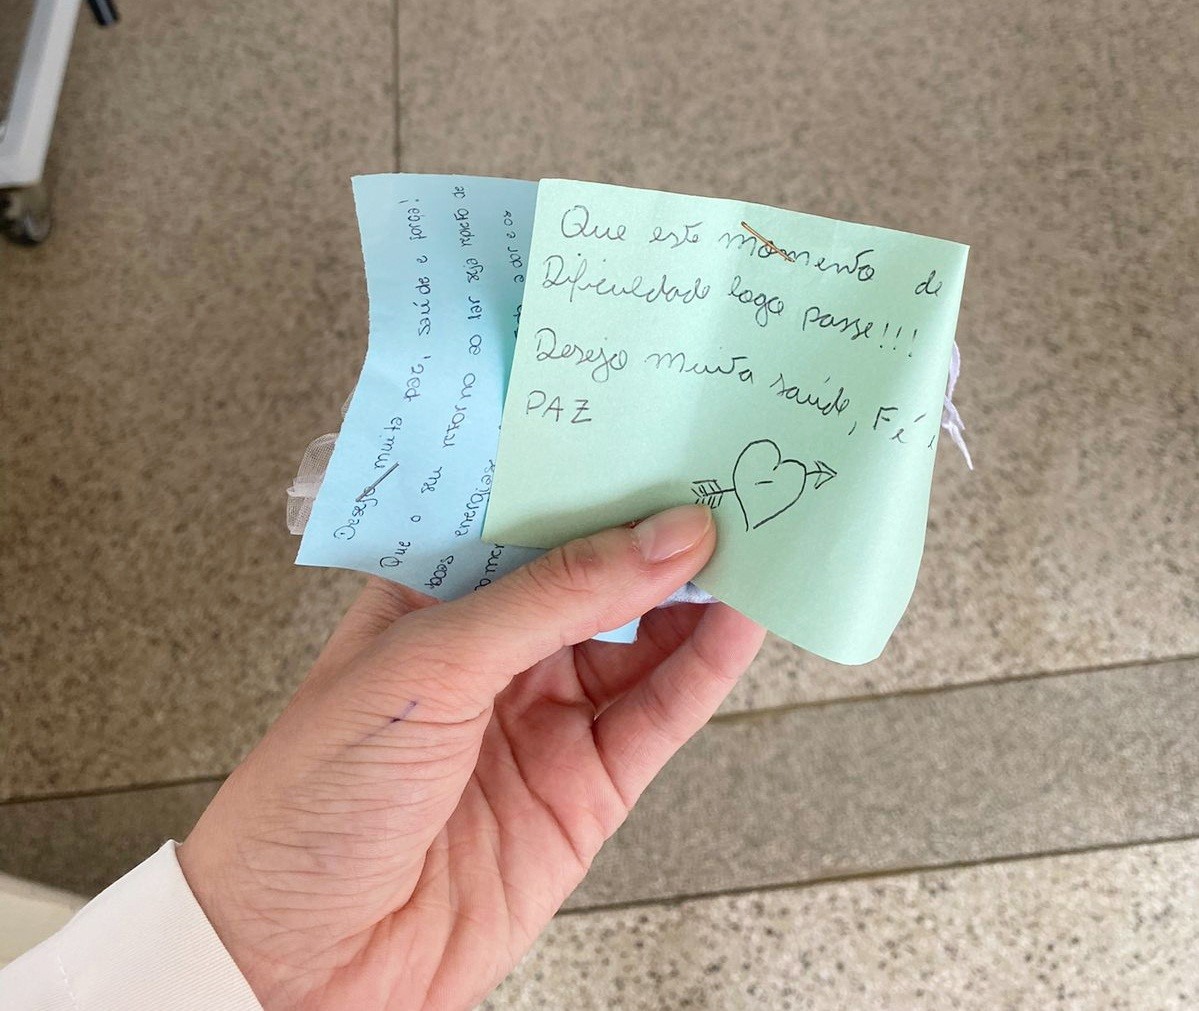 Que este momento de
Dificuldade logo passe!!!
Desejo muita saúde, Fé e
PAZ
Desejo muita paz, saúde e força!
Que o seu retorno ao lar seja repleto de
boas energias
a dor e os